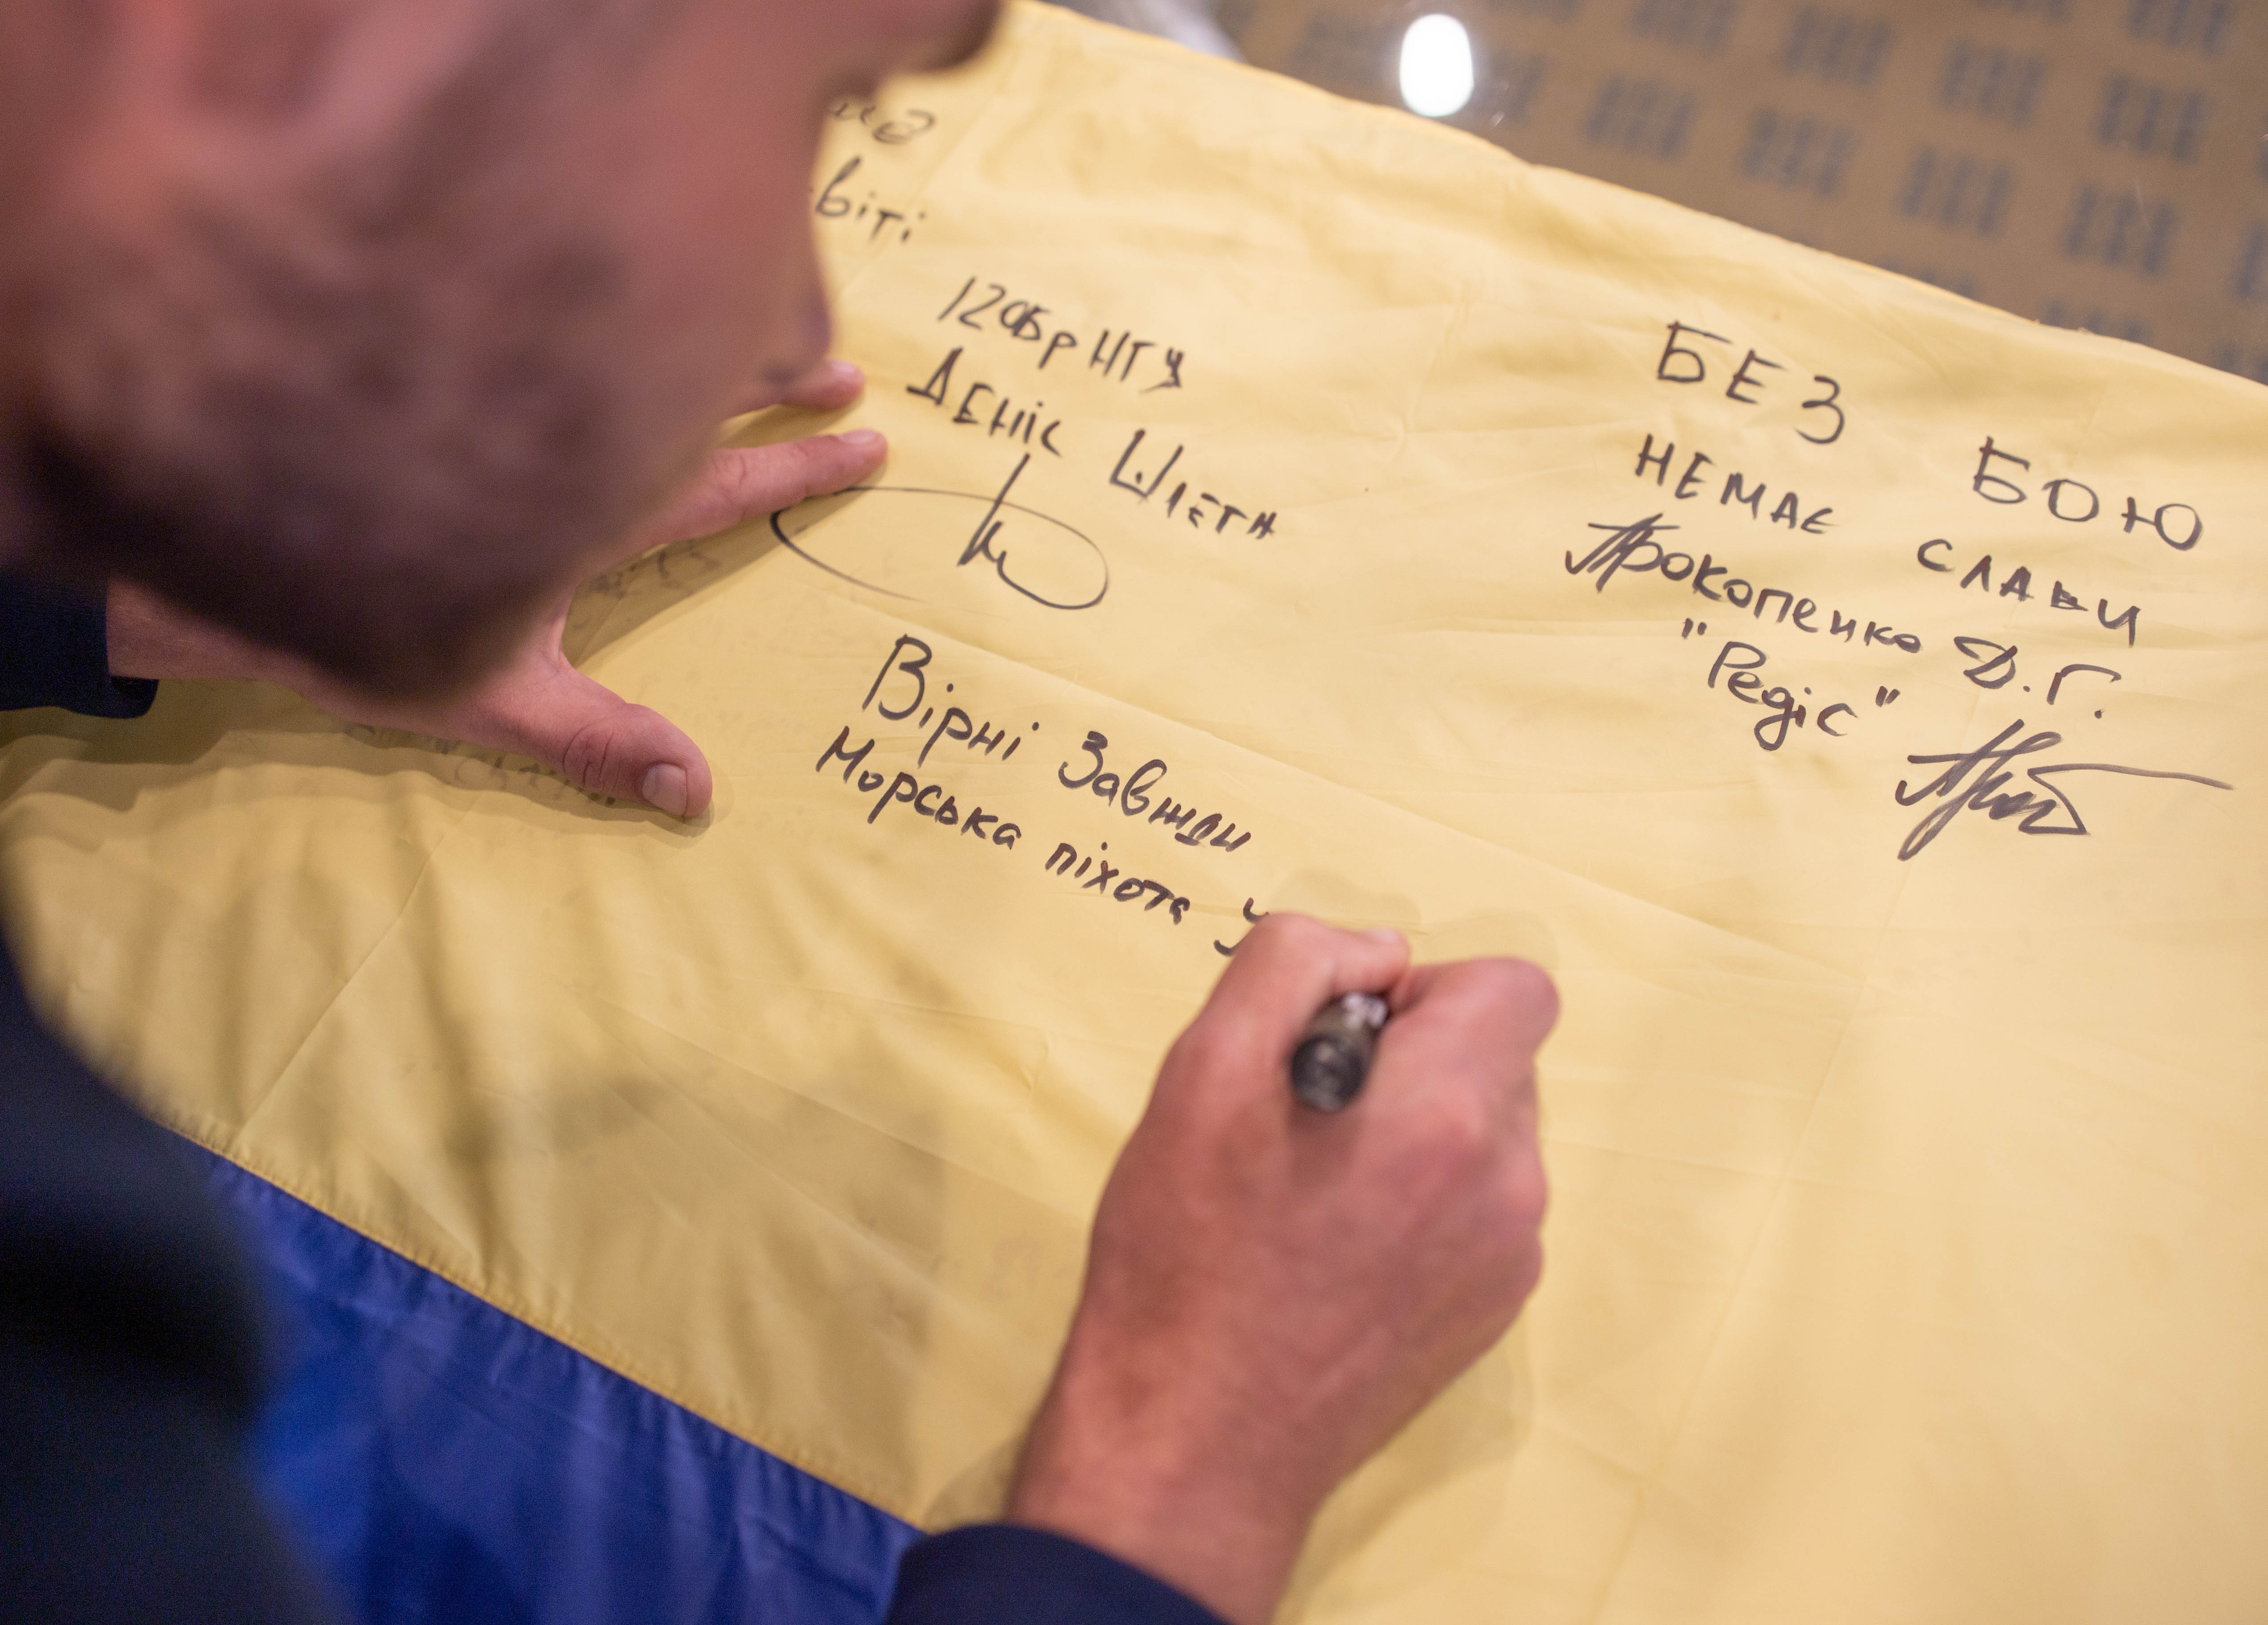 віті
12 ОБр НГУ
Деніс Шлега
Вірні Завжди
Морська піхота У
БЕЗ БОЮ
НЕМАЄ СЛАВИ
Прокопенко Д.Г.
"Редіс"